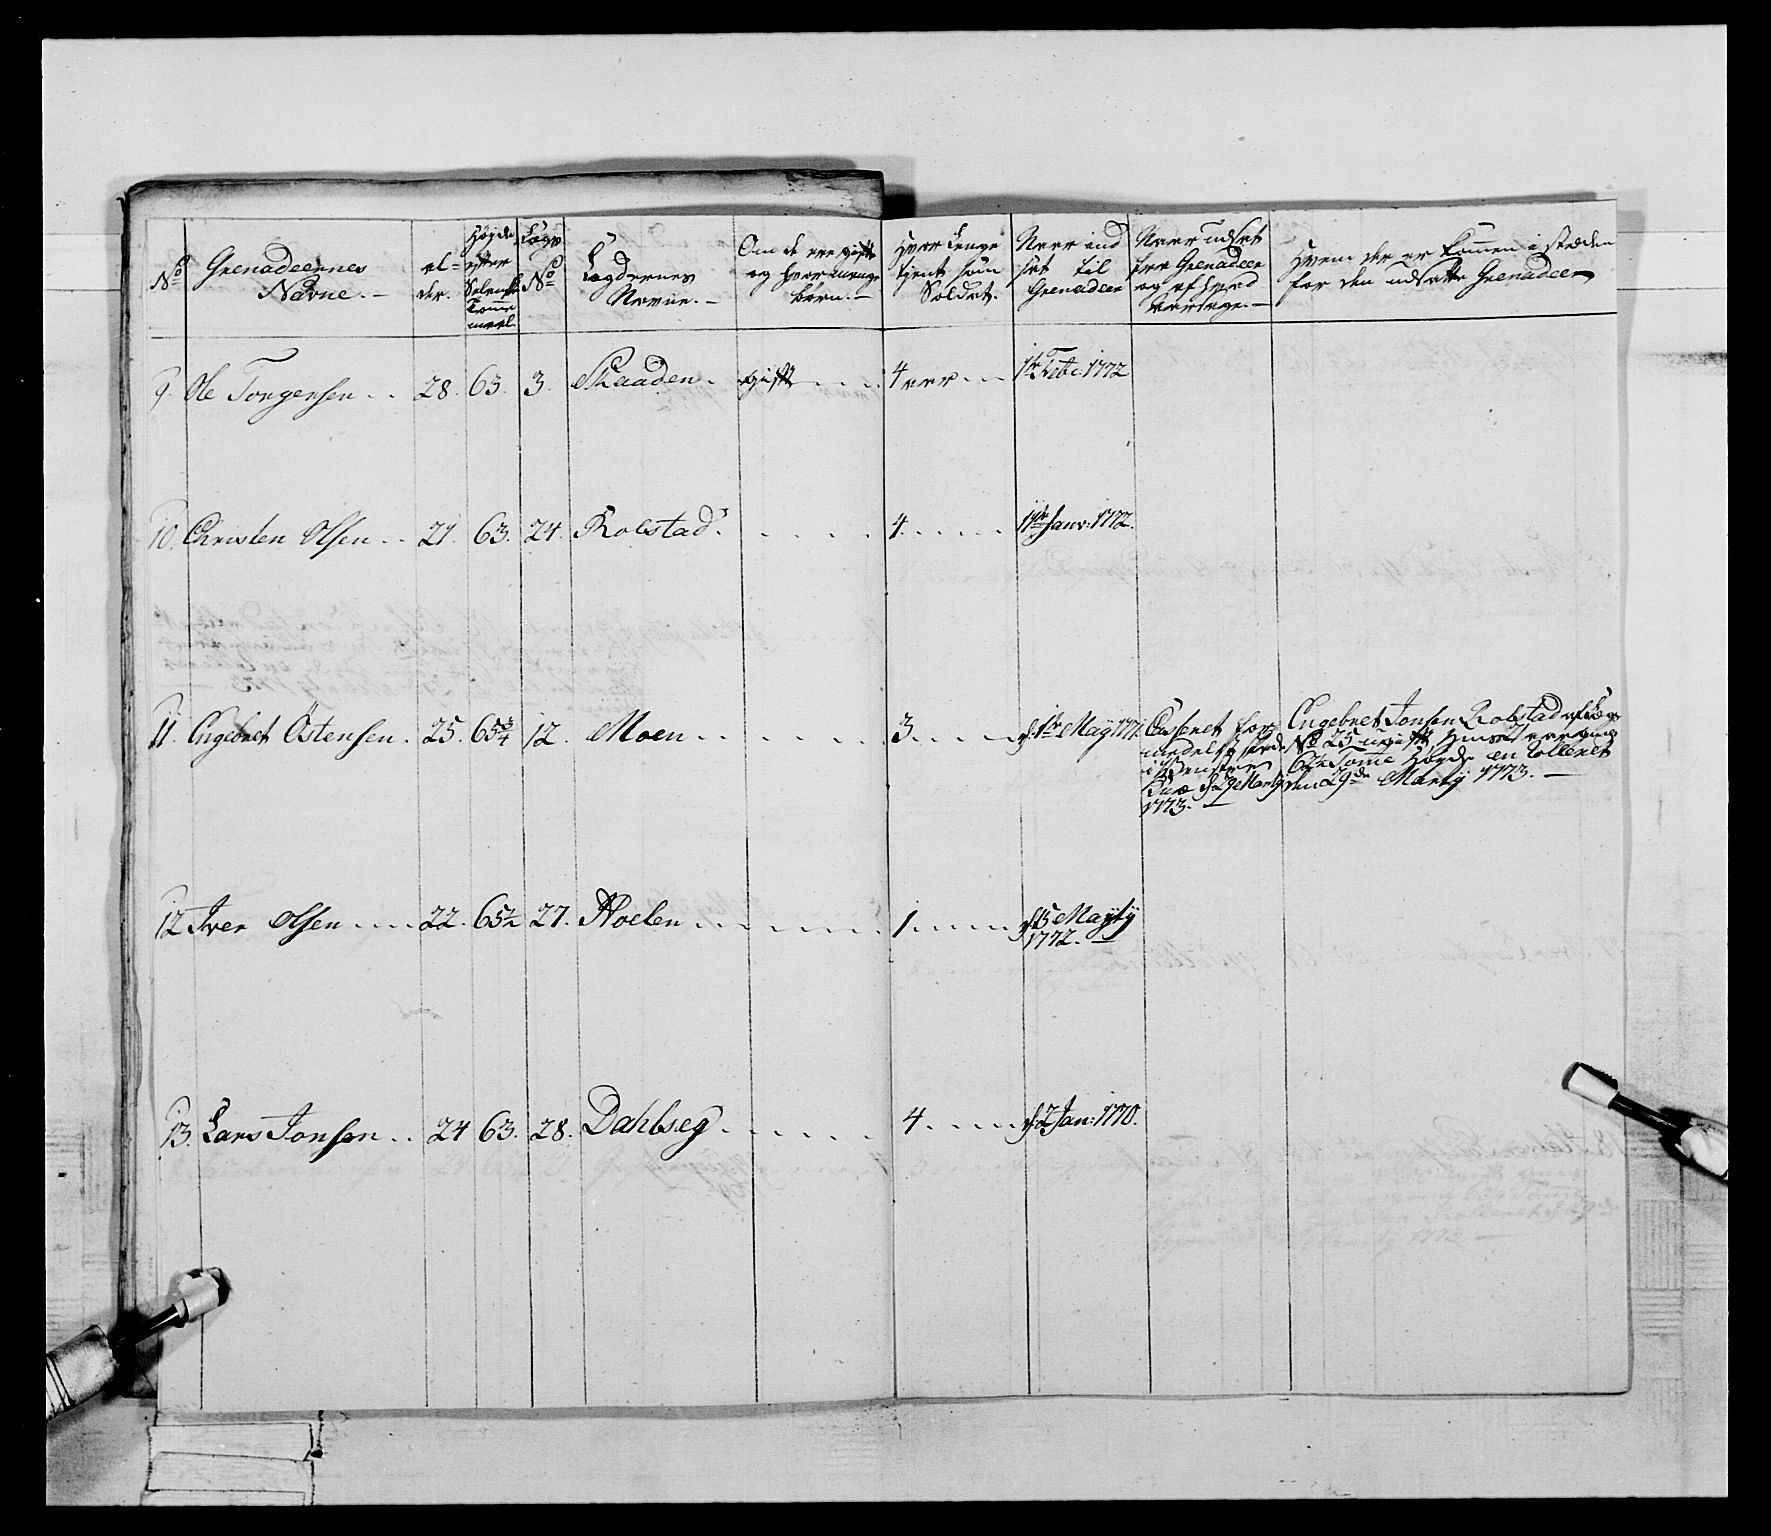 No
Grenadeernes
Navne.-
al-
der.
Høyde
efter
Tomme
maal.
Lægs
No
Lægdernes
Navne.-
Om de ere gift
og hvor mange
børn.-
Hvor lenge
tient som
Soldat.
Naar ind
sat til
Grenadeer
Naar udsat
fra Grenadeer
og af hvad
aarsage.-
Hvem der er kommen i stæden
for den udsatte Grenadeer
9. Ole Torgersen . . 28. 63. 3. Skaaden. gift . . . 4 aar . . . 1te Feb: 1772
10. Christen Olsen . . 21. 63. 24. Kolstad. . . . . 4. . . . . 11te Janv: 1772.
11. Engebret Østensen. 25. 65 3/4 12. Moen . . . . . 3. . . . . d: 1te May 1771.
1773.-
Engebret Jonsen Kolstad af Læg
No 25 ugift, 21 aar gml
Tome Høyde en Rolleret
den 29de Marty 1773.-
12. Iver Olsen . . . . 22. 65 1/2 27. Hoelen . . . . . 1. . . . . d: 15 Mayty
1772.-
13. Lars Jonsen . . 24 63. 28. Dahlseg . . . . . 4. . . . . d: 2 Jan: 1770.